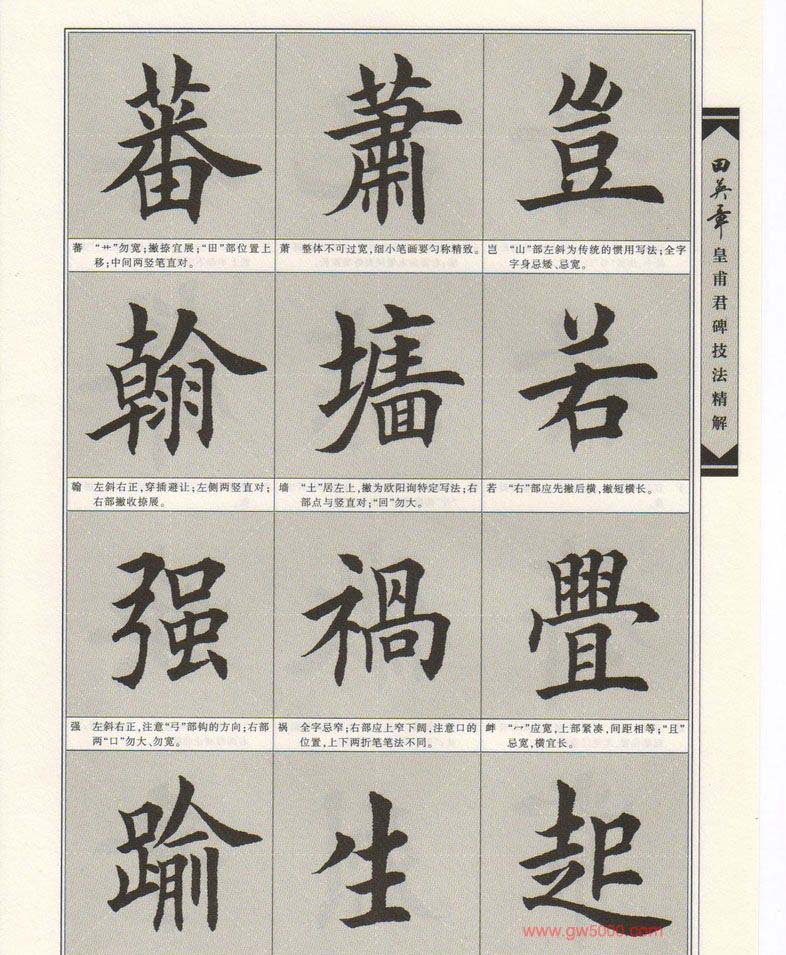 蕃 蕭 豈
蕃 “艹”勿宽；撇捺宜展；“田”部位置上
移；中间两竖笔直对。
萧 整体不可过宽，细小笔画要匀称精致。
岂 “山”部左斜为传统的惯用写法；全字
字身忌矮、忌宽。
翰 墙 若
翰 左斜右正，穿插避让；左侧两竖直对；
右部撇收捺展。
墙 “土”居左上，撇为欧阳询特定写法；右
部点与竖直对；“回”勿大。
若 “右”部应先撇后横，撇短横长。
强 禍 舋
强 左斜右正，注意“弓”部钩的方向；右部
两“口”勿大、勿宽。
祸 全字忌窄；右部应上窄下阔，注意口的
位置，上下两折笔笔法不同。
衅 “冖”应宽，上部紧凑，间距相等；“且”
忌宽，横宜长。
踰 生 起
www.gw5000.com
田英章
皇甫君碑技法精解